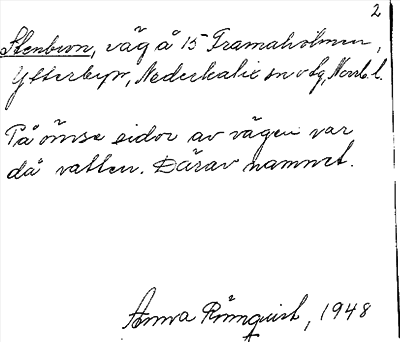 2
Stenbron, väg å 15 Framaholmen,
Ytterbyn, Nederkalix sn o lg, Norrb. l.
På ömse sidor av vägen var
då vatten. Därav namnet.
Anna Rönnquist, 1948